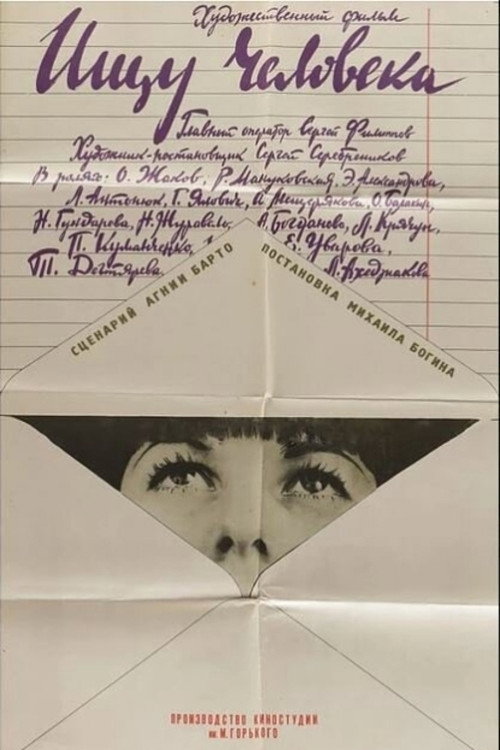 Художественный фильм
Ищу человека
Главный оператор Сергей Филиппов
Художник-постановщик Сергей Серебреников
В ролях: О. Жаков, Р. Мануковская, Э. Александрова,
Л. Антонюк, Г. Ялович, А. Мещерякова, О. Балакин,
Н. Гундарева, Н. Журавель, А. Богданова, Л. Крячун,
П. Кулманченко, Е. Уварова,
Т. Дегтярева, Л. Ахеджакова
СЦЕНАРИЙ АГНИИ БАРТО
ПОСТАНОВКА МИХАИЛА БОГИНА
ПРОИЗВОДСТВО КИНОСТУДИИ
им. М. ГОРЬКОГО